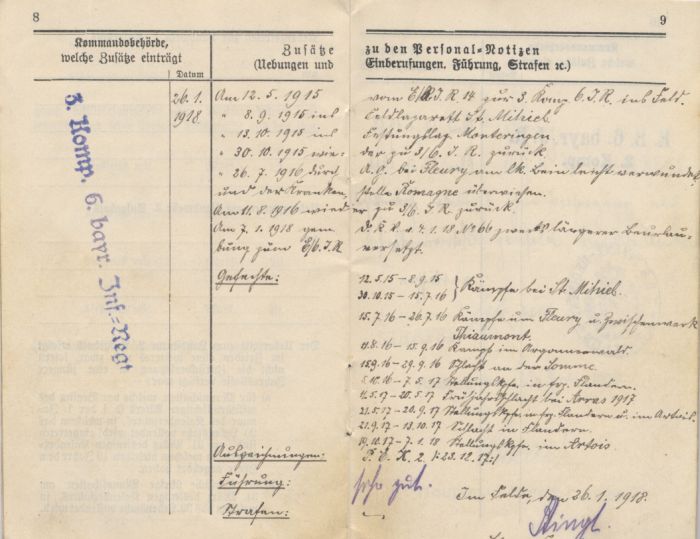 8
9
Kommandobehörde,
welche Zusätze einträgt
Datum
Zusätze zu den Personal-Notizen
(Uebungen und Einberufungen, Führung, Strafen ec.)
3. Komp. 6. bayr. Inf.=Regt
26.1. 1918
Am 12.5.1915 vom E/R.J.R. 14 zur 3. Komp. 6.J.R. ins Feld.
" 8.9.1915 ins Feldlazarett St. Mihiel
" 13.10.1915 ins Festungslaz. Montmédy
" 30.10.1915 wieder zu 3/6. J.R. zurück.
" 26.7.1916 durch A.G. bei Fleury am lk. Bein leicht verwundet
und der Krankensammelstelle Romagne überwiesen.
Am 11.8.1916 wieder zu 3/6. J.R. zurück.
Am 7.1.1918 gem. v. 4.1.18 No 66 zwecks längerer Beurlaubung
zum E/6.J.R. versetzt.
Gefechte:
12.5.15 – 8.9.15
30.10.15 – 15.7.16 } Kämpfe bei St. Mihiel.
15.7.16 – 26.7.16 Kämpfe um Fleury u. Zwischenwerk
Thiaumont.
11.8.16 – 15.9.16 Kampf im Argonnerwald.
15.9.16 – 29.9.16 Schlacht an der Somme.
5.10.16 – 7.5.17 Stellungskpfe. in frz. Flandern.
11.5.17 – 20.5.17 Frühjahrsschlacht bei Arras 1917
21.5.17 – 20.9.17 Stellungskpfe. in frz. Flandern u. im Artois.
21.9.17 – 13.10.17 Schlacht in Flandern.
14.10.17 – 7.1.18 Stellungskpfe. im Artois
Auszeichnungen: E.K. 2. /:23.12.17:/
Führung: sehr gut.
Strafen: –
Im Felde, den 26.1.1918.